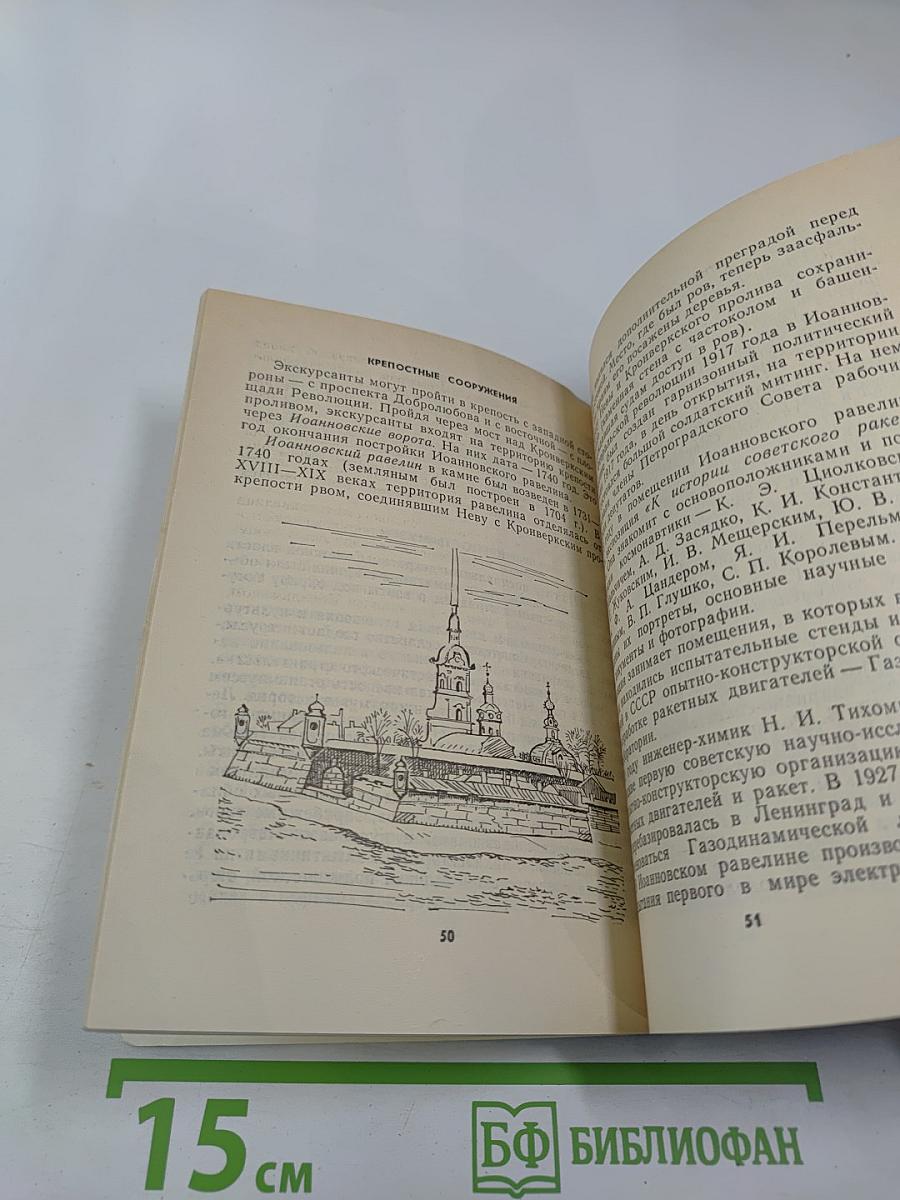 КРЕПОСТНЫЕ СООРУЖЕНИЯ
Экскурсанты могут пройти в крепость с западной сто-
роны — с проспекта Добролюбова и с восточной — с пло-
щади Революции. Пройдя через мост над Кронверкским
проливом, экскурсанты входят на территорию крепости
через Иоанновские ворота. На них дата — 1740 год. Это
год окончания постройки Иоанновского равелина.
Иоанновский равелин в камне был возведен в 1731—
1740 годах (земляным был построен в 1704 г.). В
XVIII—XIX веках территория равелина отделялась от
крепости рвом, соединявшим Неву с Кронверкским про-
50
дополнительной преградой перед
Место, где был ров, теперь заасфаль-
его посажены деревья.
и Кронверкского пролива сохрани-
XIX стена с частоколом и башен-
судам доступ в ров).
революции 1917 года в Иоаннов-
создан гарнизонный политический
года, в день открытия, на территории
большой солдатский митинг. На нем
члены Петроградского Совета рабочих
депутатов.
в помещении Иоанновского равелина
«К истории советского раке
знакомит с основоположниками и по
космонавтики — К. Э. Циолковс
А. Д. Засядко, К. И. Константи
Жуковским, И. В. Мещерским, Ю. В.
Ф. А. Цандером, Я. И. Перельм
В. П. Глушко, С. П. Королевым.
их портреты, основные научные
и фотографии.
занимает помещения, в которых в
находились испытательные стенды и
в СССР опытно-конструкторской о
ракетных двигателей — Газ
году инженер-химик Н. И. Тихом
первую советскую научно-иссл
организацию
двигателей и ракет. В 1927
в Ленинград и
Газодинамической
Иоанновском равелине произво
первого в мире электр
51
15 см
БФ БИБЛИОФАН